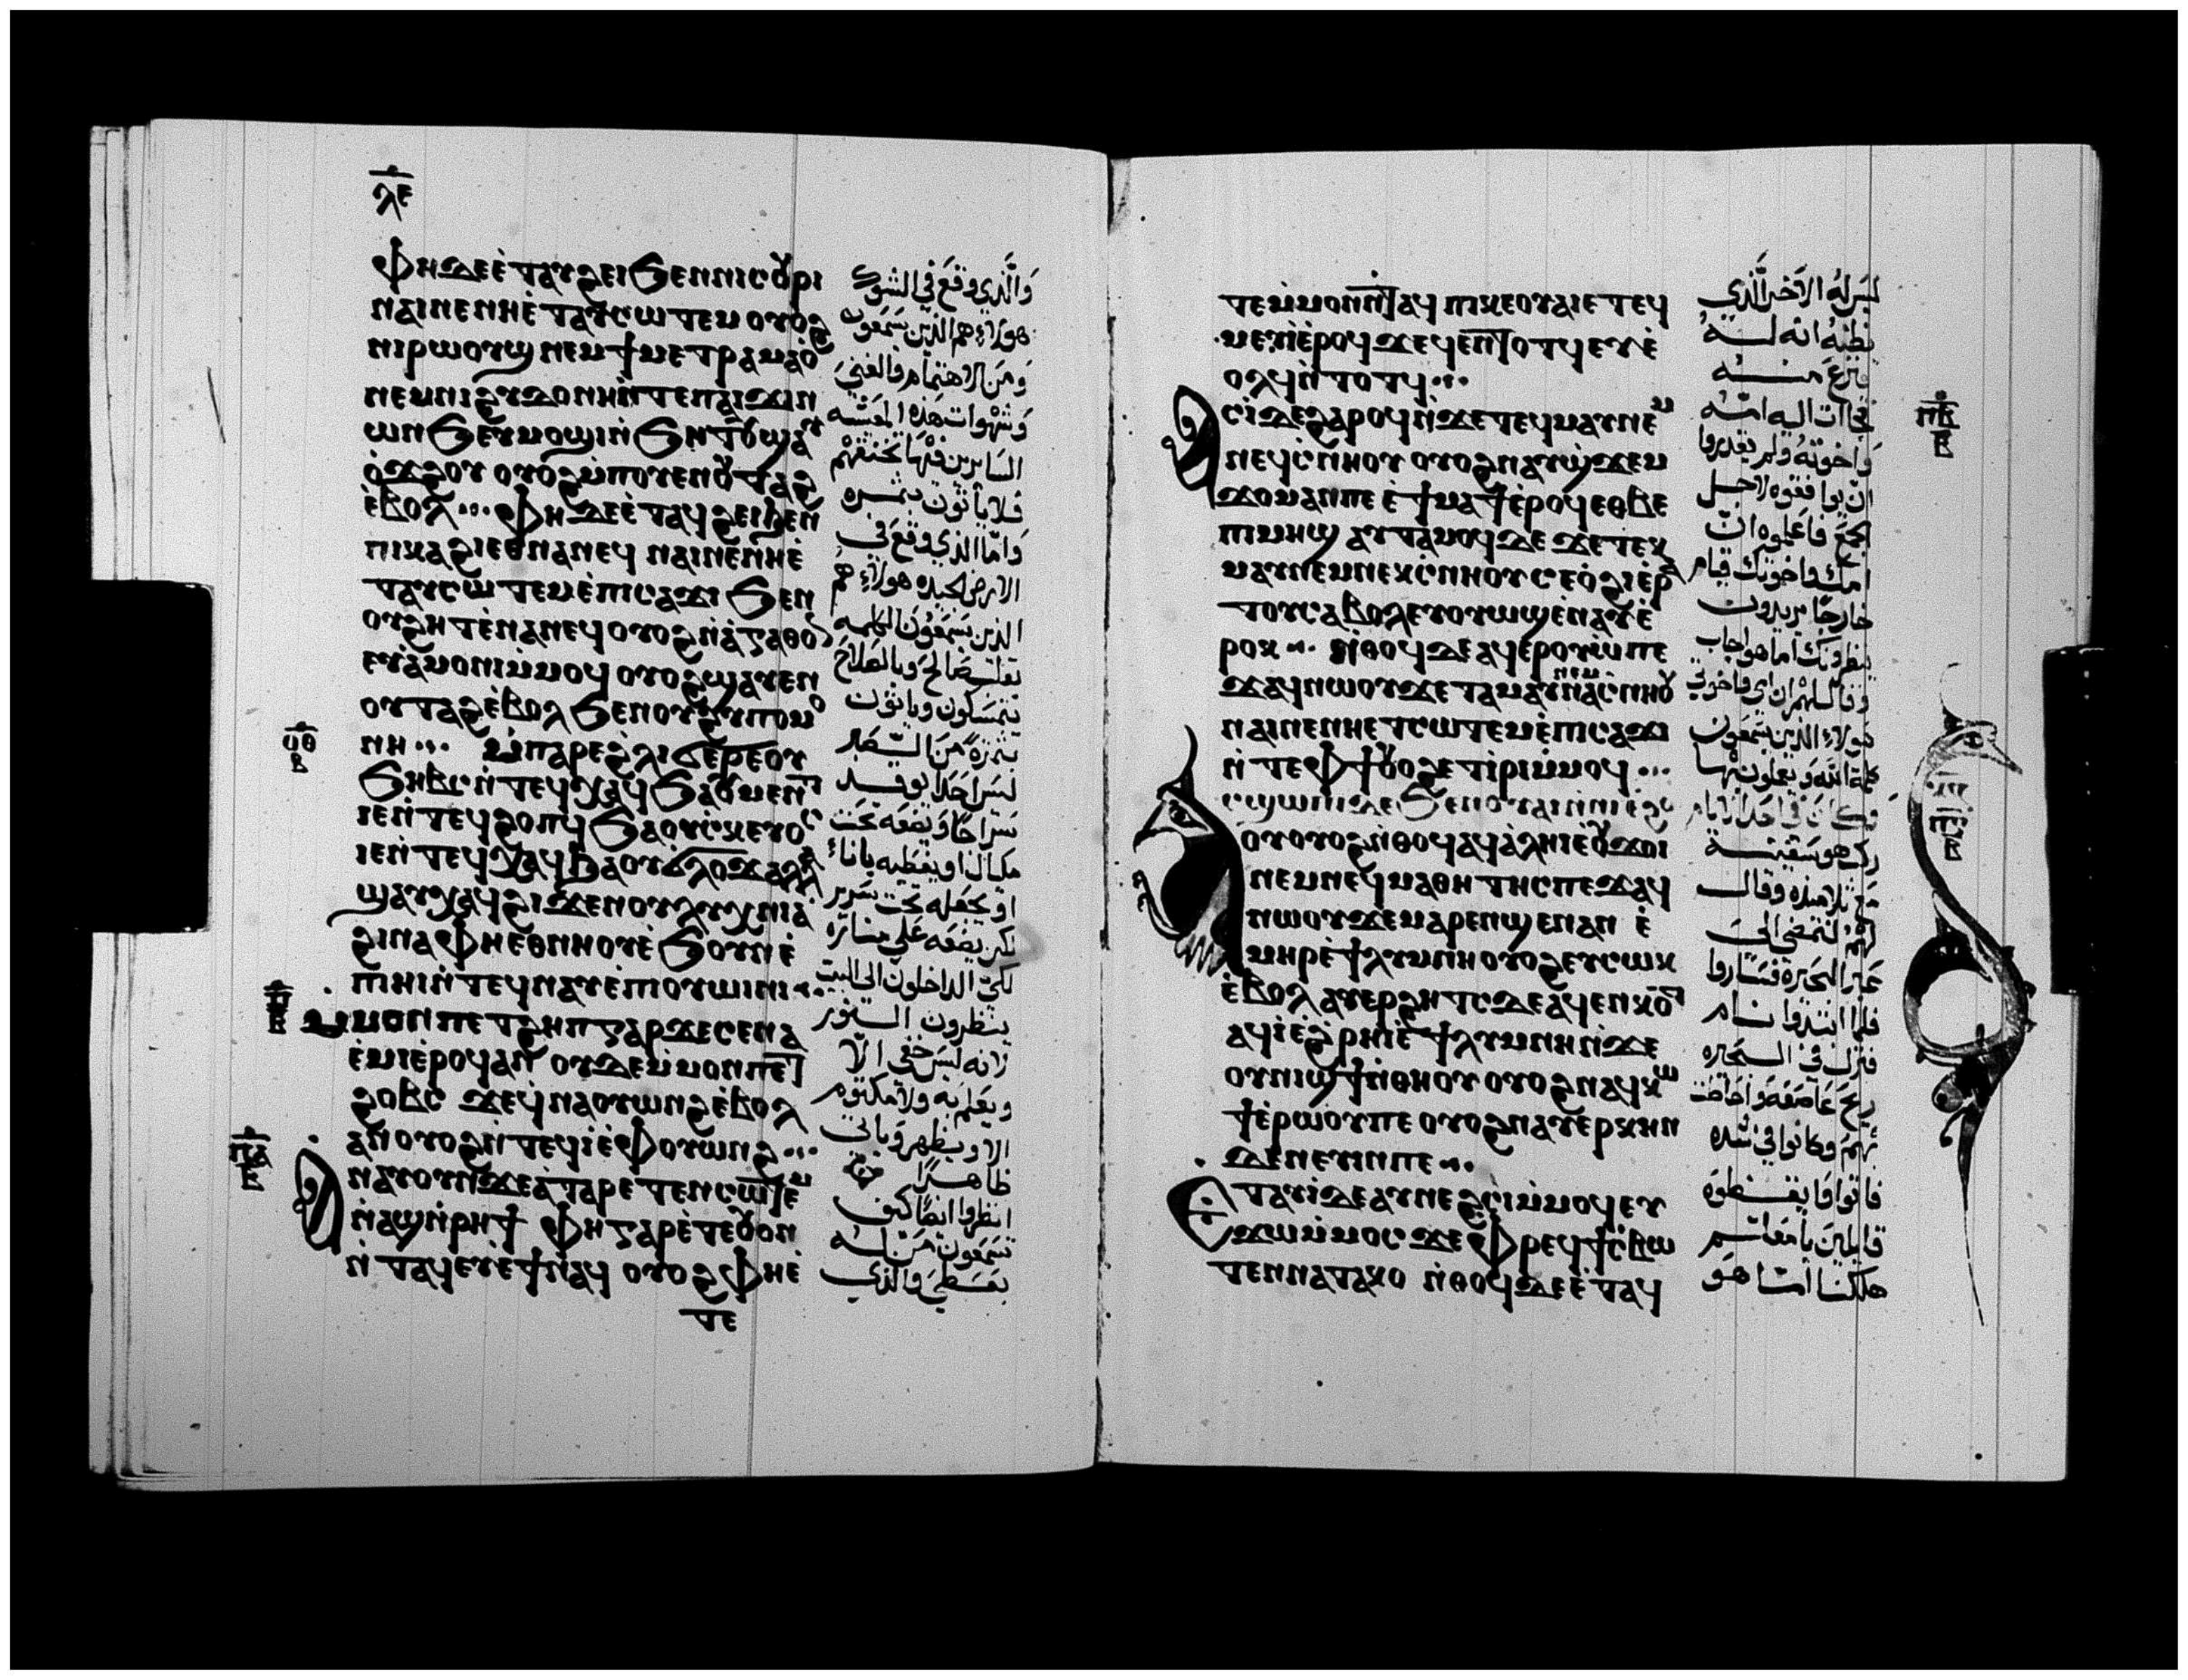 ⲗⲉ
Ⲫⲏⲇⲉⲉ̀ⲧⲁⲩϩⲉⲓϧⲉⲛⲛⲓⲥⲟⲩⲣⲓ
ⲛⲁⲓⲛⲉⲛⲏⲉ̀ⲧⲁⲩⲥⲱⲧⲉⲙ ⲟⲩⲟϩ
ⲛⲓⲣⲱⲟⲩϣ ⲛⲉⲙϯⲙⲉⲧⲣⲁⲙⲁⲟ̀
ⲛⲉⲙⲛⲓϩⲩⲇⲟⲛⲏⲛ̀ⲧⲉⲡⲁⲓϫⲓⲛ
ⲱⲛϧⲉⲩⲙⲟϣⲓⲛ̀ϧⲏⲧⲟⲩϣⲁⲩ
ⲟ̀ϫϩⲟⲩ ⲟⲩⲟϩⲙ̀ⲡⲟⲩⲉⲛⲟⲩⲧⲁϩ
ⲉ̀ⲃⲟⲗ Ⲫⲏⲇⲉⲉ̀ⲧⲁϥϩⲉⲓϧⲉⲛ
ⲡⲓⲕⲁϩⲓⲉⲑⲛⲁⲛⲉϥ ⲛⲁⲓⲛⲉⲛⲏⲉ̀
ⲧⲁⲩⲥⲱⲧⲉⲙⲉ̀ⲡⲓⲥⲁϫⲓ ϧⲉⲛ
ⲟⲩϩⲏⲧⲉ̀ⲛⲁⲛⲉϥ ⲟⲩⲟϩⲛ̀ⲁ̀ⲅⲁⲑⲟⲛ
ⲉⲩⲁ̀ⲙⲟⲛⲓⲙ̀ⲙⲟϥ ⲟⲩⲟϩϣⲁⲩⲉⲛ
ⲟⲩⲧⲁϩⲉ̀ⲃⲟⲗ ϧⲉⲛⲟⲩϩⲩⲡⲟⲙⲟ
ⲛⲏ ⲙ̀ⲡⲁⲣⲉϩ̀ⲗⲓϭⲉⲣⲉⲟⲩ
ⲟ̅ⲑ̅
ϧⲏⲃⲥⲛ̀ⲧⲉϥⲭⲁϥ ϧⲁⲟⲩⲙⲉⲛⲧ
ⲓⲉⲛ̀ⲧⲉϥϩⲟⲡϥ ϧⲁⲟⲩⲥ̀ⲕⲉⲩⲟⲥ
ⲓⲉⲛ̀ⲧⲉϥⲭⲁϥ ϧⲁⲟⲩϭ̀ⲗⲟϫ ⲁⲗⲗⲁ
ϣⲁⲩⲭⲁϥϩⲓϫⲉⲛⲟⲩⲗⲩⲭⲛⲓⲁ̀
ϩⲓⲛⲁⲪⲏⲉⲑⲛⲏⲟⲩⲉ̀ϧⲟⲩⲛⲉ̀
ⲡⲓⲏⲓⲛ̀ⲧⲉϥⲛⲁⲩⲉ̀ⲡⲓⲟⲩⲱⲓⲛⲓ
ⲡ̅
ⲙ̀ⲙⲟⲛⲡⲉⲧϩⲏⲡⲅⲁⲣϫⲉⲥⲉⲛⲁ
ⲉ̀ⲙⲓⲉ̀ⲣⲟϥⲁⲛ ⲟⲩⲇⲉⲙ̀ⲙⲟⲛⲡⲉⲧ
ϩⲟⲃⲥ ϫⲉϥⲛⲁⲟⲩⲱⲛϩⲉ̀ⲃⲟⲗ
ⲁⲛ ⲟⲩⲟϩⲛ̀ⲧⲉϥⲓ̀ⲉ̀Ⲫⲟⲩⲱⲛϩ
ⲡ̅ⲁ̅
Ⲁⲛⲁⲩⲟⲩⲛϫⲉⲁ̀ⲧⲁⲣⲉⲧⲉⲛⲥⲱⲧⲉⲙ
ⲛ̀ⲁϣⲛ̀ⲣⲏϯ Ⲫⲏⲅⲁⲣⲉ̀ⲧⲉⲟⲩⲟⲛ
ⲛ̀ⲧⲁϥⲉⲩⲉ̀ϯⲛⲁϥ ⲟⲩⲟϩⲪⲏⲉ̀
ⲧⲉ
وَالَّذي وقع في الشوك
هولاء هم الذين يسمعون
ومن الاهتمام والغنى
وشهوات هذه المعيشه
السايرين فيها تخنقهم
فلا ياتون بثمره
واما الذي وقع في
الارض الجيده هولاء هم
الذين يسمعون الكلمه
بقلب صالح وبالصلاح
يتمسكون وياتون
بثمرة من الصبر
ليس احدا يوقد
سراجا ويضعه تحت
مكيال او يغطيه باناء
او يجعله تحت سرير
لكن يضعه على مناره
لكي الداخلون الى البيت
ينظرون النور
لانه ليس خفي الا
ويعلم به ولا مكتوم
الا ويظهر وياتي
ظاهرا
انظروا ايضا كيف
تسمعون من له
يعطي والذي
ⲧⲉⲙ̀ⲙⲟⲛⲛ̀ⲧⲁϥ ⲡⲓⲕⲉⲟⲩⲁⲓⲉⲧⲉϥ
ⲙⲉⲩⲓ̀ⲉ̀ⲣⲟϥ ϫⲉϥⲉⲛⲧⲟⲧϥ ⲉⲩⲉ̀
ⲟⲗϥⲛ̀ⲧⲟⲧϥ
ⲡ̅ⲃ̅
Ⲁⲥⲓ̀ⲇⲉϩⲁⲣⲟϥⲛ̀ϫⲉⲧⲉϥⲙⲁⲩⲛⲉⲙ
ⲛⲉϥⲥ̀ⲛⲏⲟⲩ ⲟⲩⲟϩⲛⲁⲩϣ̀ϫⲉⲙ
ϫⲟⲙⲁⲛⲡⲉ ⲉ̀ϯⲙⲁϯⲉ̀ⲣⲟϥ ⲉⲑⲃⲉ
ⲡⲓⲙⲏϣ ⲁⲩⲧⲁⲙⲟϥⲇⲉ ϫⲉⲧⲉⲕ
ⲙⲁⲩⲛⲉⲙⲛⲉⲕⲥ̀ⲛⲏⲟⲩ ⲥⲉⲟ̀ϩⲓⲉ̀ⲣⲁ
ⲧⲟⲩⲥⲁⲃⲟⲗ ⲉⲩⲟⲩⲱϣⲉ̀ⲛⲁⲩⲉ̀
ⲣⲟⲕ ⲛ̀ⲑⲟϥⲇⲉ ⲁϥⲉⲣⲟⲩⲱ̀ ⲡⲉ
ϫⲁϥⲛⲱⲟⲩ ϫⲉⲧⲁⲙⲁⲩⲛⲉⲙⲛⲁⲥ̀ⲛⲏⲟⲩ
ⲛⲁⲓⲛⲉⲛⲏⲉⲧⲥⲱⲧⲉⲙⲉ̀ⲡⲓⲥⲁϫⲓ
ⲛ̀ⲧⲉⲪϯ ⲟⲩⲟϩⲉⲧⲓ̀ⲣⲓⲙ̀ⲙⲟϥ
ⲡ̅ⲅ̅
ⲥϣⲱⲡⲓⲇⲉϧⲉⲛⲟⲩⲁⲓⲛ̀ⲛⲓⲉ̀ϩ
ⲟⲟⲩ ⲟⲩⲟϩⲛ̀ⲑⲟϥ ⲁϥⲁ̀ⲗⲏⲓⲉ̀ⲟⲩϫⲟⲓ
ⲛⲉⲙⲛⲉϥⲙⲁⲑⲏⲧⲏⲥ ⲡⲉϫⲁϥ
ⲛⲱⲟⲩ ϫⲉⲙⲁⲣⲉⲛϣⲉⲛⲁⲛ ⲉ̀
ⲙⲏⲣⲉ̀ϯⲗⲩⲙⲛⲏ ⲟⲩⲟϩⲉⲩⲥⲱⲕ
ⲉ̀ⲃⲟⲗ ⲁⲩⲉⲣϩⲏⲧⲥⲇⲉ ⲁϥⲉⲛⲕⲟⲧ
ⲁϥⲓ̀ⲉ̀ϩ̀ⲣⲏⲓⲉ̀ϯⲗⲩⲙⲛⲏⲛ̀ϫⲉ
ⲟⲩⲛⲓϣϯⲛ̀ⲑⲏⲟⲩ ⲟⲩⲟϩⲛⲁϥⲕⲱ
ϯⲉ̀ⲣⲱⲟⲩⲡⲉ ⲟⲩⲟϩⲛⲁⲩⲉⲣⲕⲏⲛ
ⲇⲉⲛⲉⲩⲓⲛⲡⲉ
Ⲉⲧⲁⲩⲓ̀ⲇⲉ ⲁⲩⲛⲉϩⲥⲓⲙ̀ⲙⲟϥ ⲉⲩ
ϫⲱⲙ̀ⲙⲟⲥ ϫⲉⲪⲣⲉϥϯⲥ̀ⲃⲱ
ⲧⲉⲛⲛⲁⲧⲁⲕⲟ ⲛ̀ⲑⲟϥⲇⲉ ⲉ̀ⲧⲁϥ
ليس له الاخر الَّذي
يظنه انه له
ينزع منه
فجاءت اليه امه
واخوته ولم يقدروا
ان يوافقوه لاجل
الجمع فاعلموه ان
امك واخوتك قيام
خارجا يريدون
ينظرونك اما هو اجاب
وقال لهم ان امي واخوتي
هولاء الذين يسمعون
كلمة الله ويعملون بها
وكان في احد الايام
ركب هو سفينة
مع تلاميذه وقال
لهم لنمضي الى
عبر البحيره فساروا
فلما ابتدوا نام
فنزل في البحيره
ريح عاصفة واحاطت
بهم وكانوا في شده
فاتوا وايقظوه
قايلين يا معلم
هلكنا اما هو